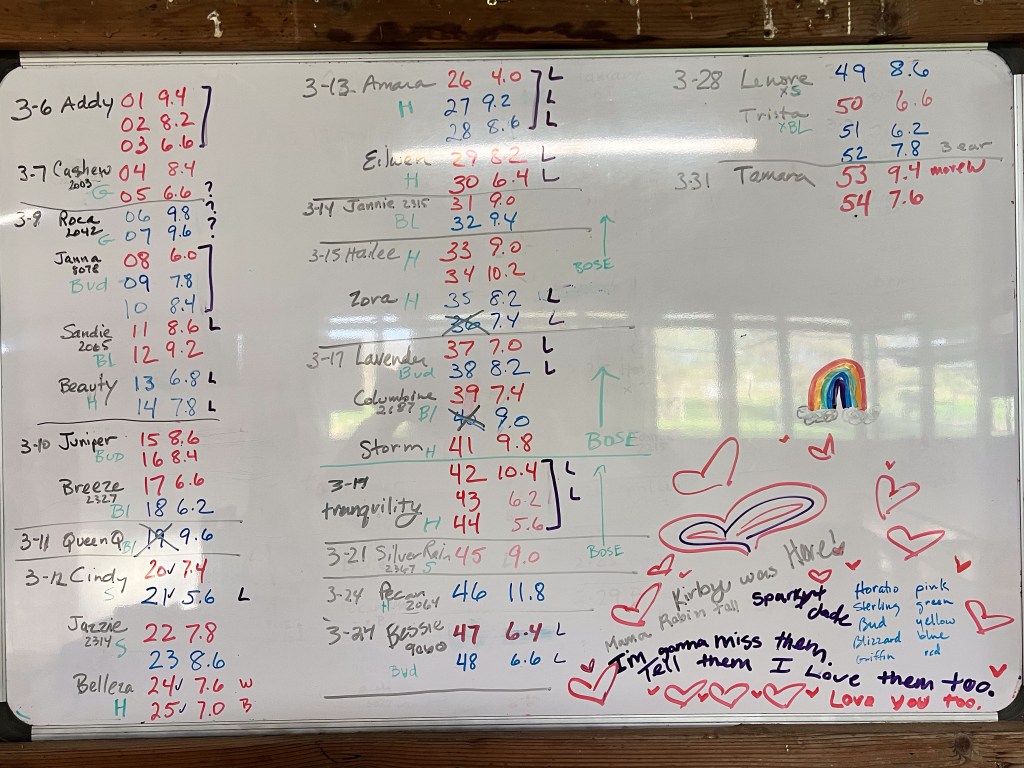 3-6 Addy 01 9.4
02 8.2
03 6.6
3-7 Cashew 04 8.4
2003 G 05 6.6 ?
3-9 Roca 06 9.8 ?
2042 G 07 9.6 ?
Janna 08 6.0
8078
Bud 09 7.8
10 8.4
Sandie 11 8.6 L
2065
BL 12 9.2
Beauty 13 6.8 L
H 14 7.8 L
3-10 Juniper 15 8.6
BUD 16 8.4
Breeze 17 6.6
2327
Bl 18 6.2
3-11 Queen Q Bl 19 9.6
3-12 Cindy 20✓ 7.4
S 21✓ 5.6 L
Jazzie 22 7.8
2314 S
23 8.6
Belleza 24✓ 7.6 W
H 25✓ 7.0 B
3-13 Amara 26 4.0 L
H 27 9.2 L
28 8.6 L
Eilwen 29 8.2 L
H 30 6.4 L
3-14 Jannie 2315 31 9.0
BL 32 9.4
3-15 Hailee H 33 9.0
34 10.2
BOSE
Zora H 35 8.2 L
36 7.4 L
3-17 Lavender 37 7.0 L
Bud 38 8.2 L
Columbine 39 7.4
2687 Bl 40 9.0
Storm H 41 9.8
BOSE
3-19 42 10.4 L
tranquility 43 6.2 L
H 44 5.6
3-21 SilverRain 45 9.0
2347 S
BOSE
3-24 Pecan 46 11.8
H 2064
3-27 Bessie 47 6.4 L
9060
Bud 48 6.6 L
3-28 Lenore 49 8.6
XS
50 6.6
Trista
XBL 51 6.2
52 7.8 3 ear
3-31 Tamara 53 9.4 morew
54 7.6
Kirby was Here!
Mama Robin Fall
Sparkynt dade
Horatio pink
Sterling green
Bud yellow
Blizzard blue
Griffin red
I'm gonna miss them.
Tell them I Love them too.
Love you too.